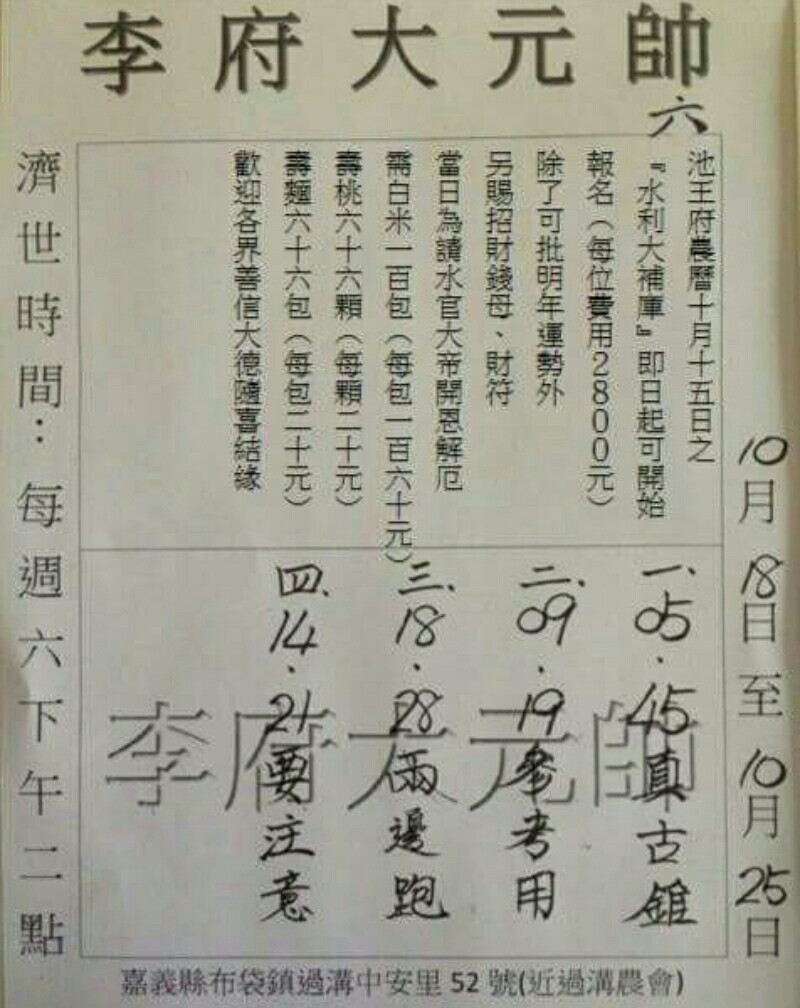 李府大元帥
六
10月18日至10月25日
池王府農曆十月十五日之
『水利大補庫』即日起可開始
報名（每位費用2800元）
除了可批明年運勢外
另賜招財錢母、財符
當日為請水官大帝開恩解厄
需白米一百包（每包一百六十元）
壽桃六十六顆（每顆二十元）
壽麵六十六包（每包二十元）
歡迎各界善信大德隨喜結緣
一、05.45真古錐
二、09.19參考用
三、18.28兩邊跑
四、14.21要注意
李府大元帥
濟世時間：每週六下午二點
嘉義縣布袋鎮過溝中安里52號(近過溝農會)